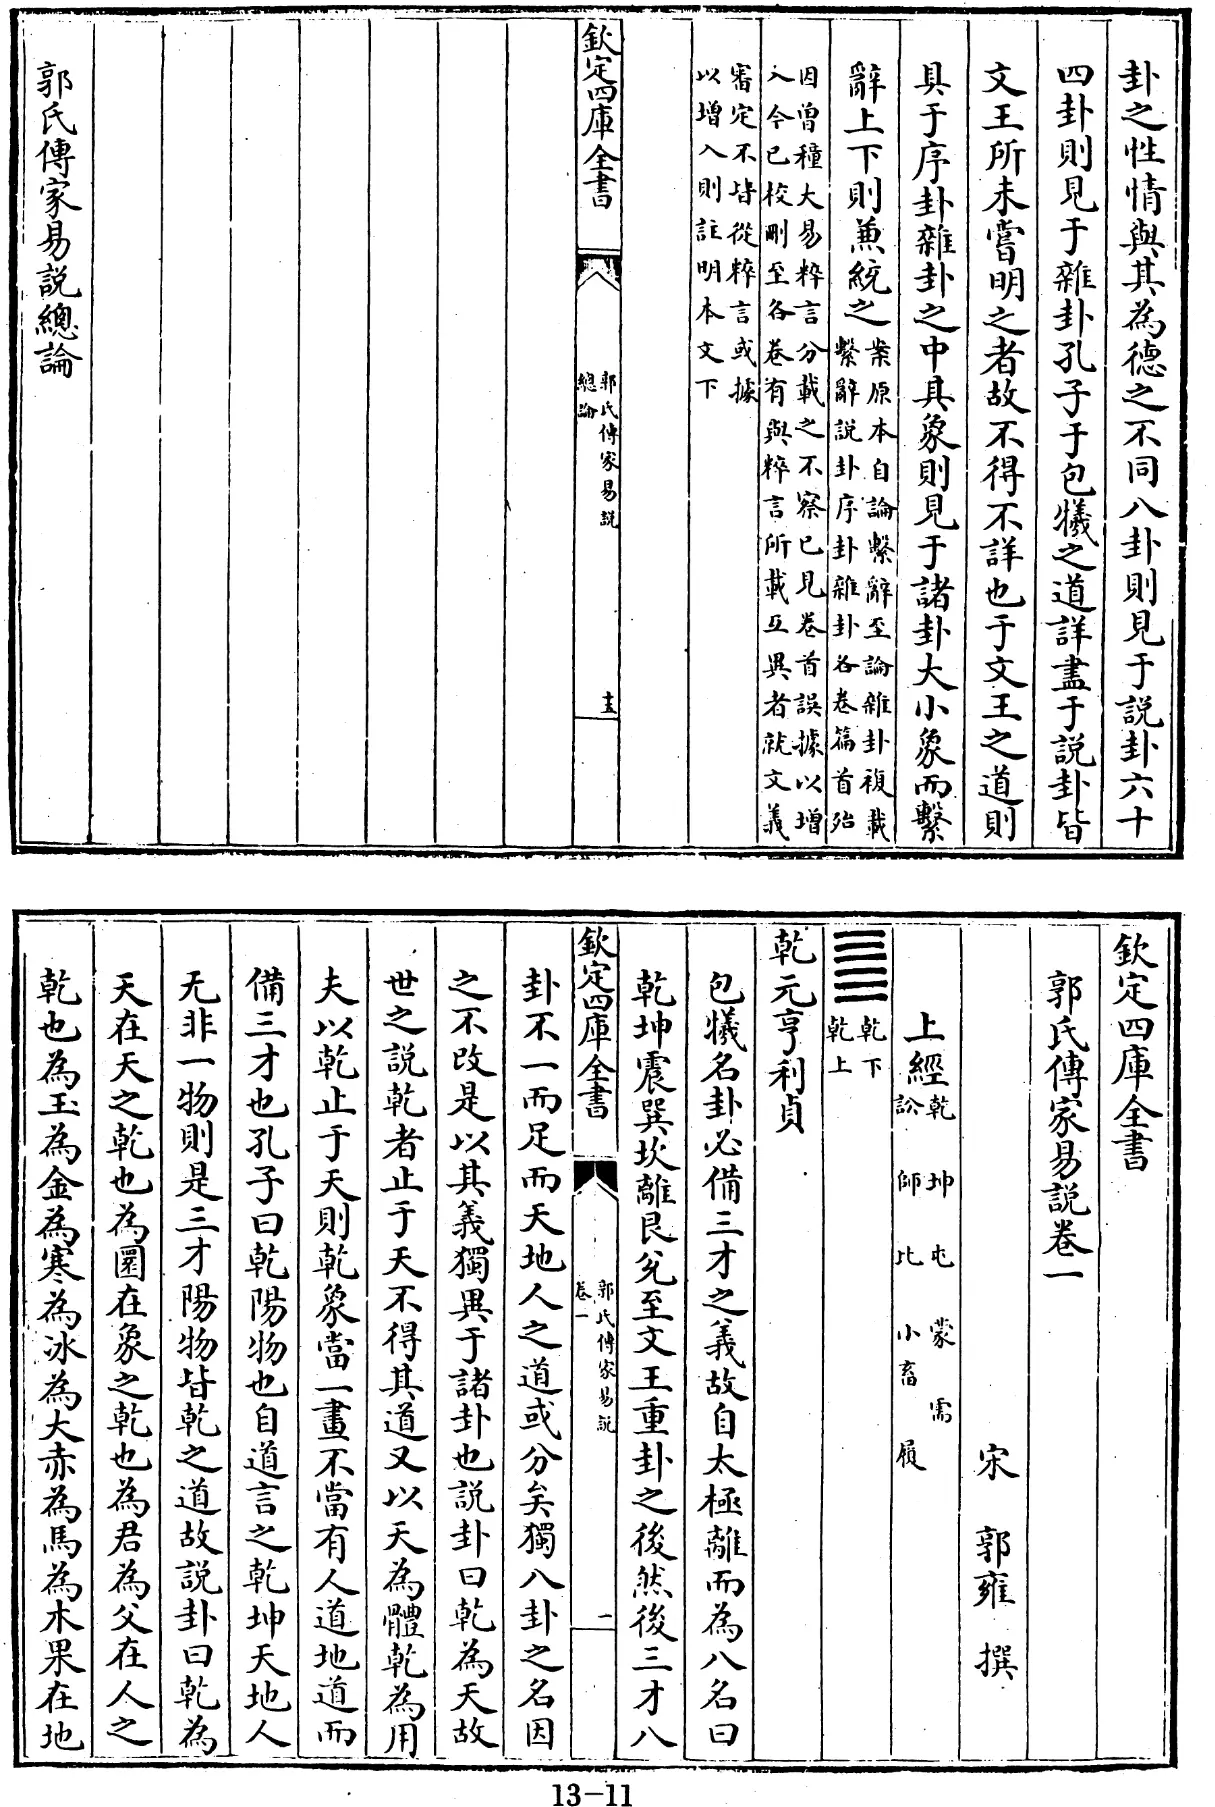 卦之性情與其為德之不同八卦則見于說卦六十
四卦則見于雜卦孔子于包犧之道詳盡于說卦皆
文王所未嘗明之者故不得不詳也于文王之道則
具于序卦雜卦之中其象則見于諸卦大小象而繫
辭上下則兼統之
案原本自論繫辭至論雜卦複載
繫辭說卦序卦雜卦各卷篇首殆
因曾穜大易粹言分載之不察已見卷首誤據以增
入今已校刪至各卷有與粹言所載互異者就文義
審定不皆從粹言或據
以增入則註明本文下
欽定四庫全書
郭氏傳家易說
總論
十五
郭氏傳家易說總論
欽定四庫全書
郭氏傳家易說卷一
宋 郭雍 撰
上經
乾 坤 屯 蒙 需
訟 師 比 小畜 履
乾下
乾上
乾元亨利貞
包犧名卦必備三才之義故自太極離而為八名曰
乾坤震巽坎離艮兌至文王重卦之後然後三才八
欽定四庫全書
郭氏傳家易說
卷一
一
卦不一而足而天地人之道或分矣獨八卦之名因
之不改是以其義獨異于諸卦也說卦曰乾為天故
世之說乾者止于天不得其道又以天為體乾為用
夫以乾止于天則乾象當一畫不當有人道地道而
備三才也孔子曰乾陽物也自道言之乾坤天地人
无非一物則是三才陽物皆乾之道故說卦曰乾為
天在天之乾也為圜在象之乾也為君為父在人之
乾也為玉為金為寒為冰為大赤為馬為木果在地
13-11